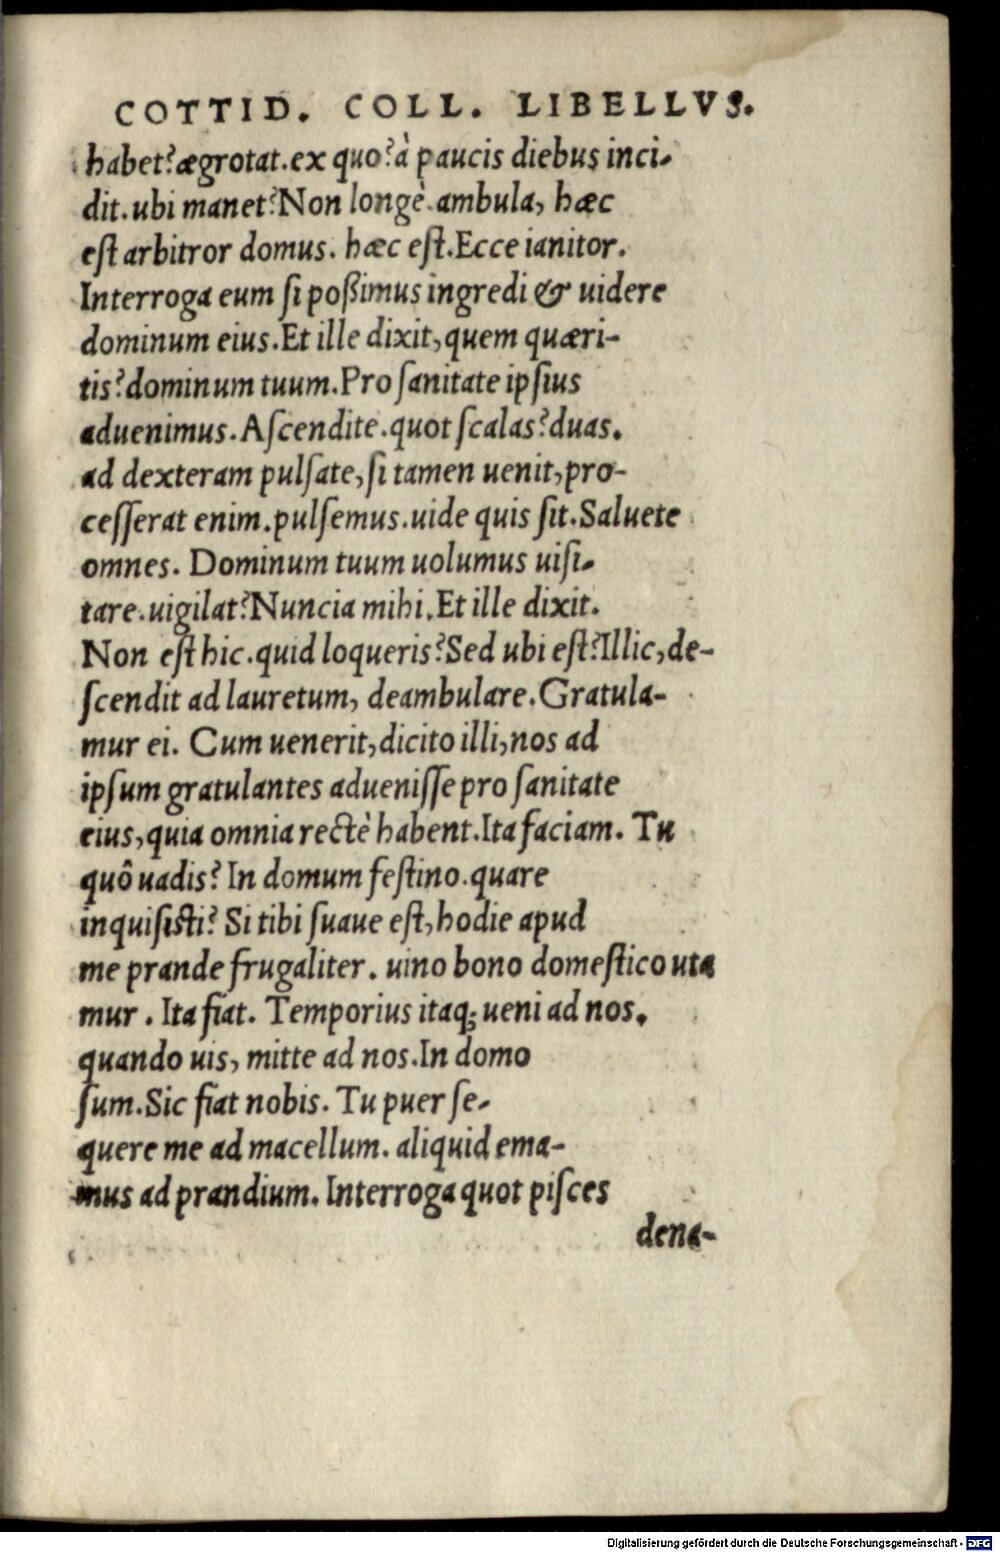 COTTID. COLL. LIBELLVS.
habet? ægrotat. ex quo? à paucis diebus inci-
dit. ubi manet? Non longè ambula, hæc
eſt arbitror domus. hæc eſt. Ecce ianitor.
Interroga eum ſi poßimus ingredi & uidere
dominum eius. Et ille dixit, quem quæri-
tis? dominum tuum. Pro ſanitate ipſius
aduenimus. Aſcendite. quot ſcalas? duas.
ad dexteram pulſate, ſi tamen uenit, pro-
ceſſerat enim. pulſemus. uide quis ſit. Saluete
omnes. Dominum tuum uolumus uiſi-
tare. uigilat? Nuncia mihi. Et ille dixit.
Non eſt hic. quid loqueris? Sed ubi eſt? Illic, de-
ſcendit ad lauretum, deambulare. Gratula-
mur ei. Cum uenerit, dicito illi, nos ad
ipſum gratulantes adueniſſe pro ſanitate
eius, quia omnia rectè habent. Ita faciam. Tu
quô uadis? In domum feſtino. quare
inquiſiſti? Si tibi ſuaue eſt, hodie apud
me prande frugaliter. uino bono domeſtico uta
mur. Ita fiat. Temporius itaq; ueni ad nos.
quando uis, mitte ad nos. In domo
ſum. Sic fiat nobis. Tu puer ſe-
quere me ad macellum. aliquid ema-
mus ad prandium. Interroga quot piſces
dena-
Digitalisierung gefördert durch die Deutsche Forschungsgemeinschaft - DFG